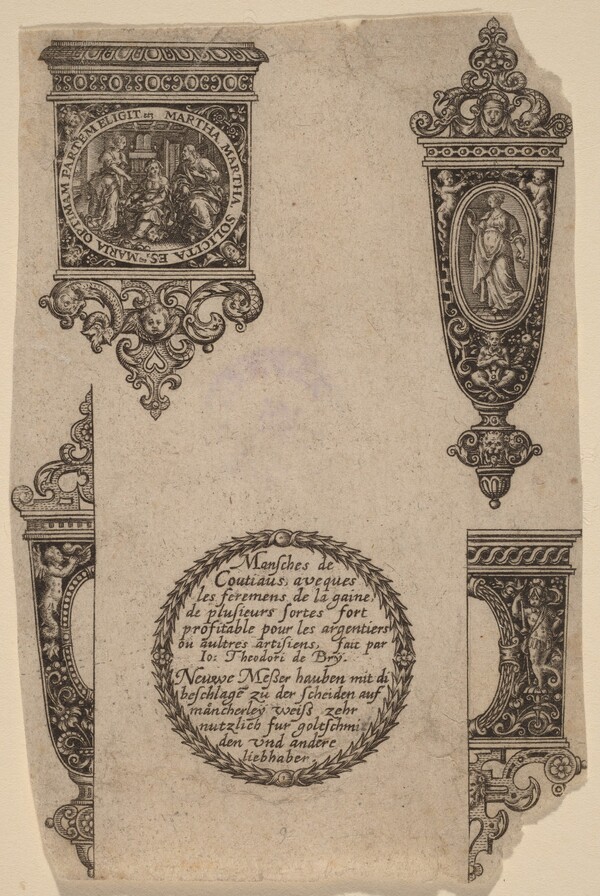 MARTHA MARTHA SOLICITA ES, MARIA OPTIMAM PARTEM ELIGIT
Mansches de
Coutiaus, aveques
les feremens de la gaine,
de plusieurs sortes fort
profitable pour les argentiers
ou aultres artisiens, fait par
Io: Theodori de Bry.
Neuwe Meßer hauben mit di
beschlage zu der scheiden auf
mâncherley weiß zehr
nutzlich fur goltschmi
den vnd andere
liebhaber.